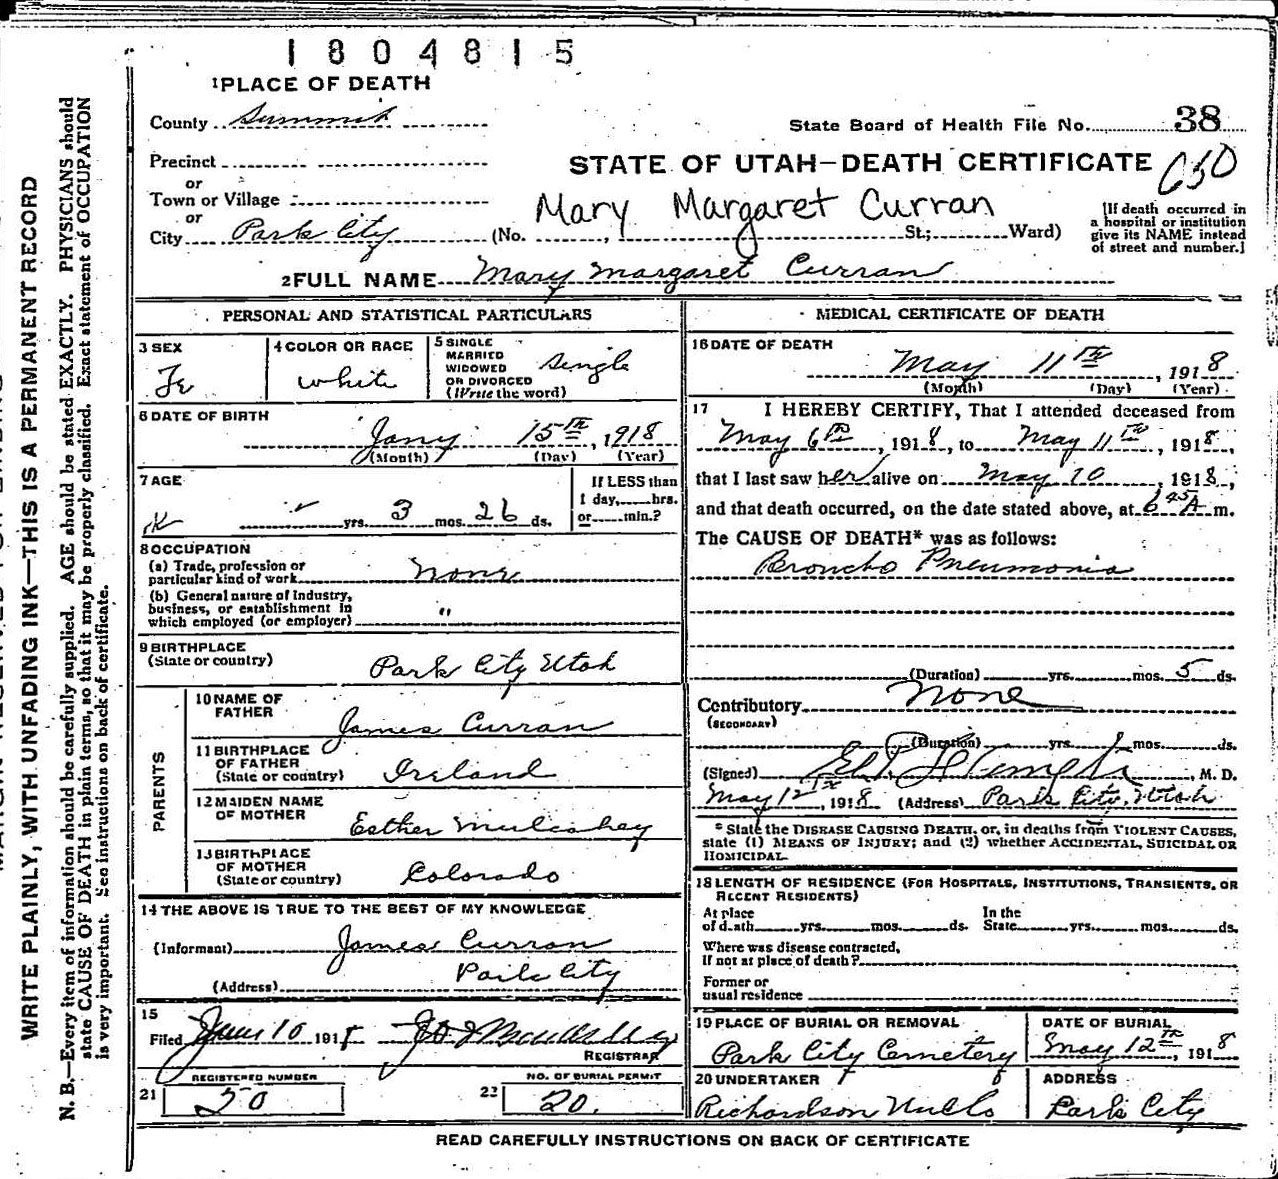 1804815
1 PLACE OF DEATH
County Summit
State Board of Health File No. 38
Precinct
STATE OF UTAH—DEATH CERTIFICATE
or
Town or Village
or
Mary Margaret Curran
City Park City (No. , St.; Ward)
[If death occurred in
a hospital or institution
give its NAME instead
of street and number.]
2 FULL NAME Mary Margaret Curran
PERSONAL AND STATISTICAL PARTICULARS
3 SEX
Fe
4 COLOR OR RACE
White
5 SINGLE
MARRIED
WIDOWED
OR DIVORCED
(Write the word)
Single
6 DATE OF BIRTH
Jany 15th, 1918
(Month) (Day) (Year)
7 AGE
yrs. 3 mos. 26 ds.
If LESS than
1 day, hrs.
or min.?
8 OCCUPATION
(a) Trade, profession or
particular kind of work None
(b) General nature of Industry,
business, or establishment in
which employed (or employer) "
9 BIRTHPLACE
(State or country) Park City Utah
PARENTS
10 NAME OF
FATHER
James Curran
11 BIRTHPLACE
OF FATHER
(State or country) Ireland
12 MAIDEN NAME
OF MOTHER
Esther Mulcahey
13 BIRTHPLACE
OF MOTHER
(State or country) Colorado
14 THE ABOVE IS TRUE TO THE BEST OF MY KNOWLEDGE
(Informant) James Curran
(Address) Park City
15
Filed June 10 1918
REGISTRAR
REGISTERED NUMBER
21 20
NO. OF BURIAL PERMIT
22 20.
MEDICAL CERTIFICATE OF DEATH
16 DATE OF DEATH
May 11th, 1918
(Month) (Day) (Year)
17 I HEREBY CERTIFY, That I attended deceased from
May 6th, 1918, to May 11th, 1918,
that I last saw her alive on May 10, 1918,
and that death occurred, on the date stated above, at 6 45 A m.
The CAUSE OF DEATH* was as follows:
Broncho Pneumonia
(Duration) yrs. mos. 5 ds.
Contributory None
(SECONDARY)
(Duration) yrs. mos. ds.
(Signed) , M. D.
May 12th, 1918 (Address) Park City, Utah
* State the DISEASE CAUSING DEATH, or, in deaths from VIOLENT CAUSES,
state (1) MEANS OF INJURY; and (2) whether ACCIDENTAL, SUICIDAL OR
HOMICIDAL.
18 LENGTH OF RESIDENCE (FOR HOSPITALS, INSTITUTIONS, TRANSIENTS, OR
RECENT RESIDENTS)
At place
of death yrs. mos. ds.
In the
State yrs. mos. ds.
Where was disease contracted,
If not at place of death?
Former or
usual residence
19 PLACE OF BURIAL OR REMOVAL
Park City Cemetery
DATE OF BURIAL
May 12th, 1918
20 UNDERTAKER
Richardson
ADDRESS
Park City
READ CAREFULLY INSTRUCTIONS ON BACK OF CERTIFICATE
WRITE PLAINLY, WITH UNFADING INK—THIS IS A PERMANENT RECORD
N. B.—Every item of information should be carefully supplied. AGE should be stated EXACTLY. PHYSICIANS should
state CAUSE OF DEATH in plain terms, so that it may be properly classified. Exact statement of OCCUPATION
is very important. See instructions on back of certificate.